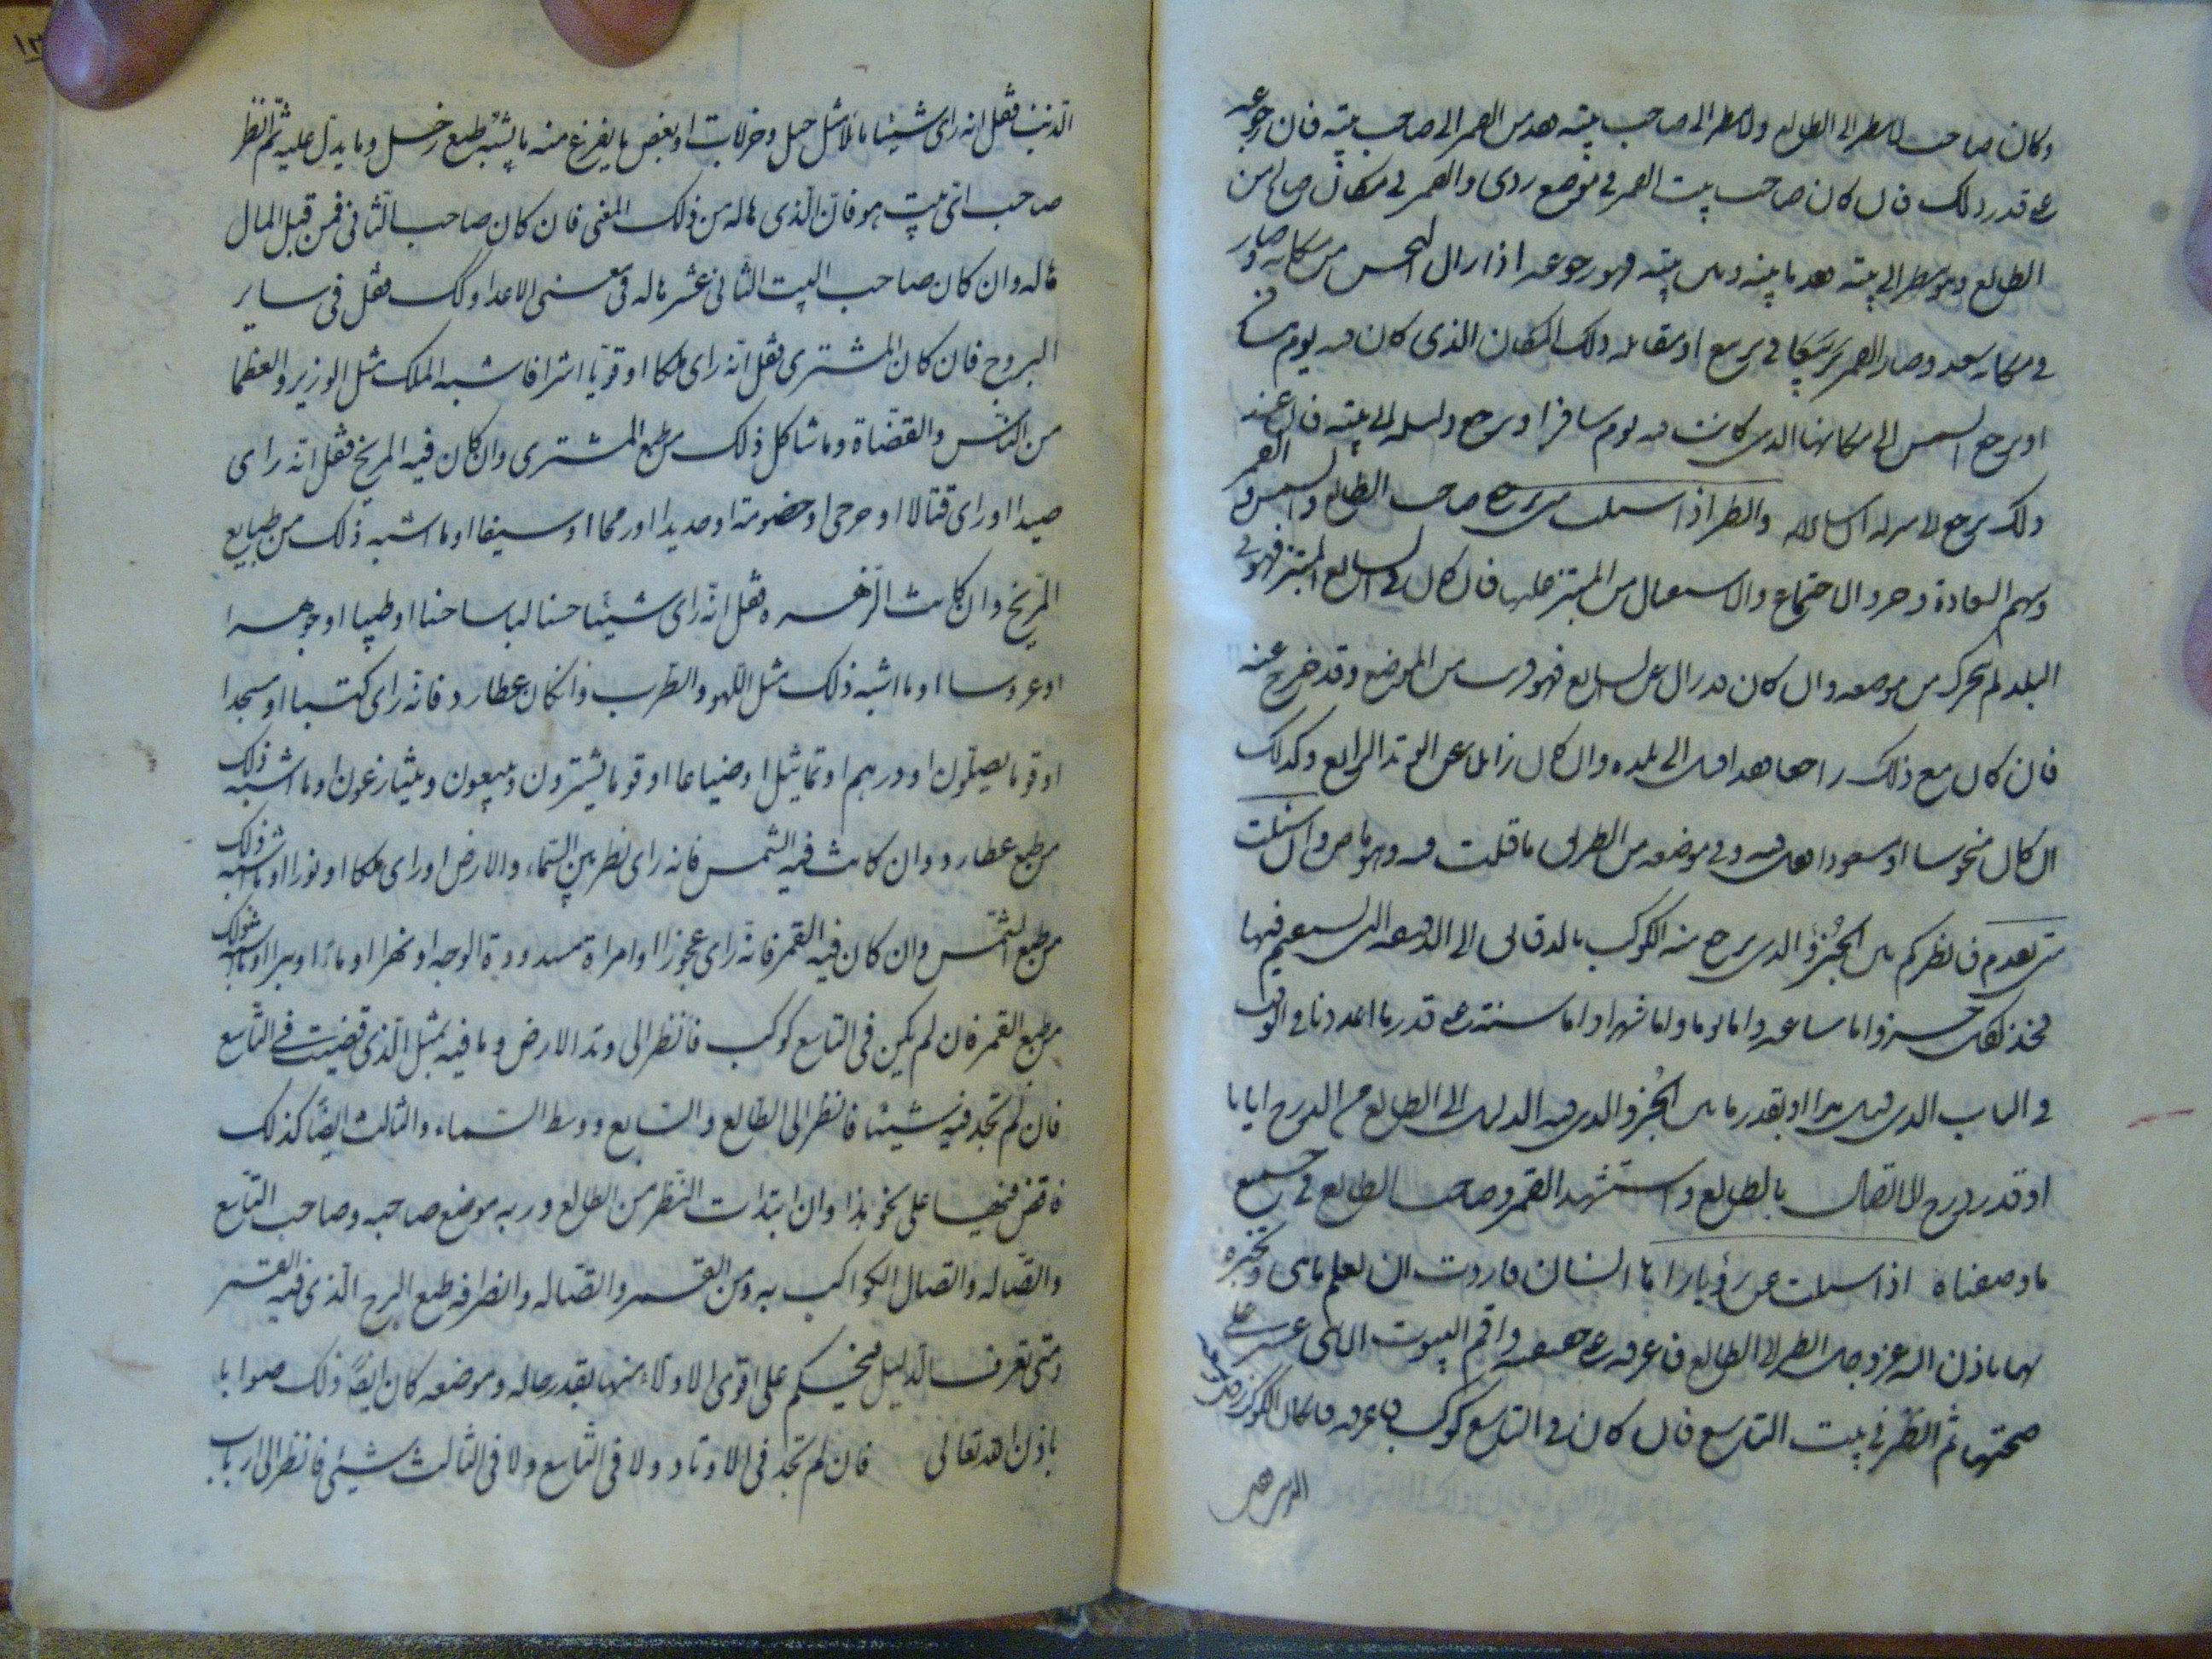 وكان صاحب لا ينظر الى الطالع ولا ينظر الى صاحب بيته القمر الى صاحب بيته فان رجوعه
على قدر ذلك فان كان صاحب بيت القمر في موضع ردى والقمر في مكان صالح من
الطالع وهو ينظر الى بيته ما بينه وبين بيته فهو رجوعه اذا زال النحس من مكانه وصار
في مكانه سعد وصار القمر في تربيع او مقابله ذلك المكان الذى كان فيه يوم سافر
او يرجع الشمس الى مكانها الذى كانت فيه يوم سافر او يرجع دليله الى بيته فان عند
ذلك يرجع الى منزله ان شا الله وانظر اذا سئلت صاحب الطالع والشمس والقمر
وسهم السعادة وجزو الاجتماع والاستقبال من المبتز عليها فان كان في السابع المبتز فهو في
البلد لم يتحرك من موضعه وان كان قد زال عن السابع فهو قريب من الموضع وقد خرج عنه
فان كان مع ذلك راجعا الى بلده وان كان زايل عن الوتد الرابع وكذلك
ان كان منحوسا او مسعودا فقل فيه وفي موضعه من الطريق ما قلت فيه وان سئلت
متى يقدم فانظر كم بين الجزؤ الذى يرجع منه الكوكب بالدقايق الى الدقيقه التى يستقيم فيها
فخذ لكل جزو اما ساعه واما يوما واما شهرا واما سنة على قدر ما اعددنا في
في الباب الذى قبل هذا او بقدر ما بين الجزو الذى فيه الدليل الى الطالع من الدرج اياما
او قدر درج الاتصال بالطالع واستشهد القمر وصاحب الطالع في جميع
ما وصفناه اذا سئلت عن رؤيا راها انسان فاردت ان تعلم ما هى وتخبره
بها باذن الله عز وجل انظر الى الطالع فاعرفه على حقيقته واقم البيوت الاثنى عشر على
صحتها ثم انظر في بيت التاسع فان كان في التاسع كوكب فاعرفه فان كان الكوكب زحل او مع
الذنب فقل
الذنب فقل انه راى شيئا هائلا مثل جبل وخرابات او بعض ما يفزع منه ما يشبه طبع زحل وما يدل عليه ثم انظر
صاحب اى بيت هو فان الذى هاله من ذلك المعنى فان كان صاحب الثانى فمن قبل المال
هاله وان كان صاحب البيت الثانى عشر هاله في معنى الاعدا وكذلك فقل في ساير
البروج فان كان المشترى فقل انه راى ملكا او قوما اشرافا شبه الملك مثل الوزير والعظما
من الناس والقضاة وما شاكل ذلك من طبع المشترى وان كان فيه المريخ فقل انه راى
صيدا او راى قتالا او جرحى او خصومة او حديدا او رمحا او سيفا او ما اشبه ذلك من طبايع
المريخ وان كانت الزهره فقل انه راى شيئا حسنا لباسا حسنا او طيبا او جوهرا
او عروسا او ما اشبه ذلك مثل اللهو والطرب وان كان عطارد فانه راى كتبا او مسجدا
او قوما يصلون او درهم او تماثيل او ضياعا او قوما يشترون ويبيعون ويتنازعون او ما اشبه ذلك
من طبع عطارد وان كانت فيه الشمس فانه راى نظر بين السماء والارض او راى ملكا او نورا او ما اشبه ذلك
من طبع الشمس وان كان فيه القمر فانه راى عجوزا او امراة مسدودة الوجه او نهرا او ماءا او بيرا او ما اشبه ذلك
من طبع القمر فان لم يكن في التاسع كوكب فانظر الى وتد الارض وما فيه بمثل الذى قضيت في التاسع
فان لم تجد فيه شيئا فانظر الى الطالع والسابع ووسط السماء والثالث ايضا كذلك
فاقض فيها على نحو هذا وان ابتدات النظر من الطالع وربه موضع صاحبه وصاحب التاسع
واتصاله واتصال الكواكب به ومن القمر واتصاله وانظر فى طبع البرج الذى فيه القمر
ومتى تعرف الدليل فيحكم على اقوى الادلاء منها بقدر حاله وموضعه كان ايضا ذلك صوابا
باذن الله تعالى فان لم تجد في الاوتاد ولا في التاسع ولا في الثالث شيئى فانظر الى ارباب